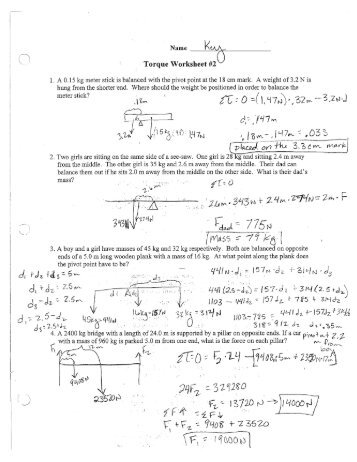 Name Key
Torque Worksheet #2
1. A 0.15 kg meter stick is balanced with the pivot point at the 18 cm mark. A weight of 3.2 N is
hung from the shorter end. Where should the weight be positioned in order to balance the
meter stick?
.18m
Στ = 0 = (1.47N)·.32m - 3.2N·d
d = .147m
3.2N
.15kg·9.8 = 1.47N
.18m - .147m = .033
placed on the 3.3 cm mark
2. Two girls are sitting on the same side of a see-saw. One girl is 28 kg and sitting 2.4 m away
from the middle. The other girl is 35 kg and 2.6 m away from the middle. Their dad can
balance them out if he sits 2.0 m away from the middle on the other side. What is their dad's
mass?
2.6m
Στ=0
2.6m·343N + 2.4m·274N = 2m·F
343N
274N
F dad = 775N
Mass = 79 kg
3. A boy and a girl have masses of 45 kg and 32 kg respectively. Both are balanced on opposite
ends of a 5.0 m long wooden plank with a mass of 16 kg. At what point along the plank does
the pivot point have to be?
d1 + d2 + d3 = 5m
d1 + d2 = 2.5m
d3 - d2 = 2.5m
d1 = 2.5 - d2
441N·d1 = 157N·d2 + 314N·d3
441(2.5-d2) = 157·d2 + 314(2.5+d2)
1103 - 441d2 = 157d2 + 785 + 314d2
1103-785 = 441d2 + 157d2 + 314d2
318 = 912 d2 d2=.35m
45kg=441N
16kg=157N
32kg=314N
4. A 2400 kg bridge with a length of 24.0 m is supported by a pillar on opposite ends. If a car
with a mass of 960 kg is parked 5.0 m from one end, what is the force on each pillar?
F1
F2
9408N
23520N
24F2 = 329280
F2 = 13720 N → 14000N
ΣF↑ = ΣF↓
F1 + F2 = 9408 + 23520
F1 = 19000N